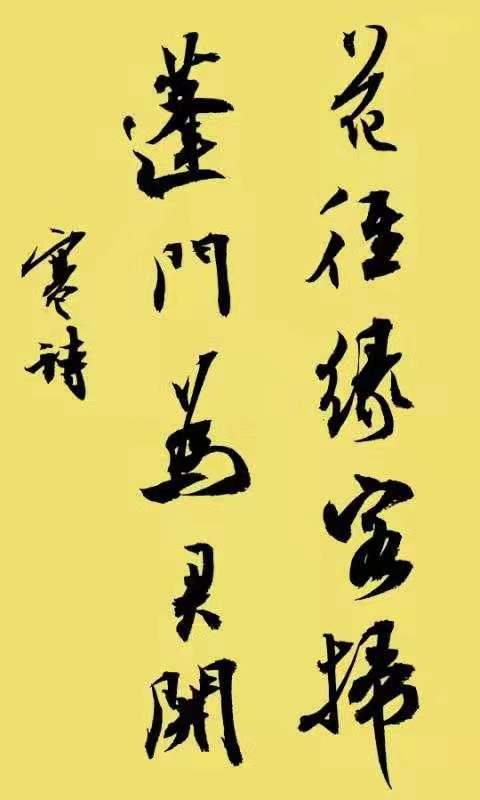 花徑緣客掃
蓬門為君開
寒詩